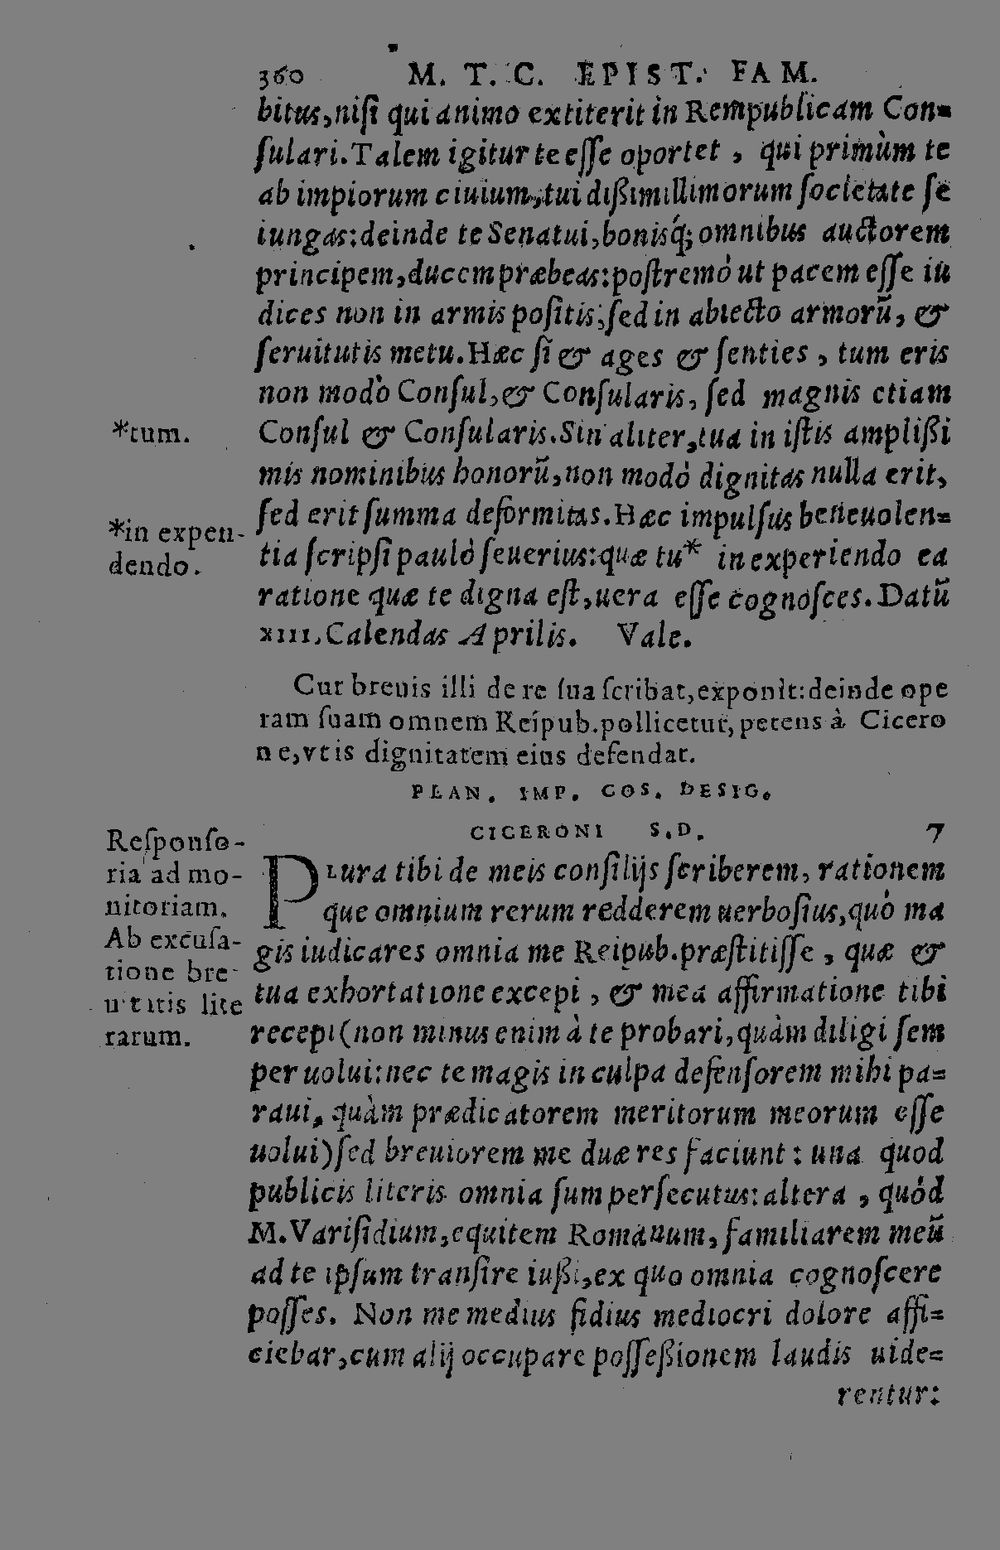 360 M. T. C. EPIST. FAM.
bitus, nisi qui animo extiterit in Rempublicam Con=
sulari. Talem igitur te esse oportet, qui primùm te
ab impiorum ciuium, tui dißimillimorum societate se
iungas: deinde te Senatui, bonisq́; omnibus auctorem
principem, ducem præbeas: postremò ut pacem esse iu
dices non in armis positis, sed in abiecto armorũ, &
seruitutis metu. Hæc si & ages & senties, tum eris
non modò Consul, & Consularis, sed magnis etiam
*tum.
Consul & Consularis. Sin aliter, tua in istis amplißi
mis nominibus honorũ, non modò dignitas nulla erit,
sed erit summa deformitas. Hæc impulsus beneuolen=
*in expen-
dendo.
tia scripsi paulò seuerius: quæ tu* in experiendo ea
ratione quæ te digna est, uera esse cognosces. Datũ
XIII. Calendas Aprilis. Vale.
Cur breuis illi de re sua scribat, exponit: deinde ope
ram suam omnem Reipub. pollicetur, petens à Cicero
ne, vt is dignitatem eius defendat.
PLAN. IMP. COS. DESIG.
CICERONI S. D. 7
Responso-
ria ad mo-
nitoriam.
Ab excusa-
tione bre-
uitatis lite
rarum.
PLura tibi de meis consilijs scriberem, rationem
que omnium rerum redderem uerbosius, quò ma
gis iudicares omnia me Reipub. præstitisse, quæ &
tua exhortatione excepi, & mea affirmatione tibi
recepi (non minus enim à te probari, quàm diligi sem
per uolui: nec te magis in culpa defensorem mihi pa=
raui, quàm prædicatorem meritorum meorum esse
uolui) sed breuiorem me duæ res faciunt: una quod
publicis literis omnia sum persecutus: altera, quòd
M. Varisidium, equitem Romanum, familiarem meũ
ad te ipsum transire iußi, ex quo omnia cognoscere
posses. Non me medius fidius mediocri dolore affi=
ciebar, cum alij occupare possessionem laudis uide=
rentur: